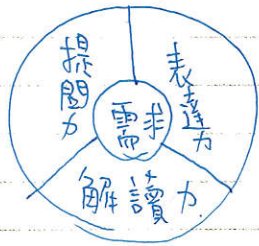 提問力
表達力
需求
解讀力